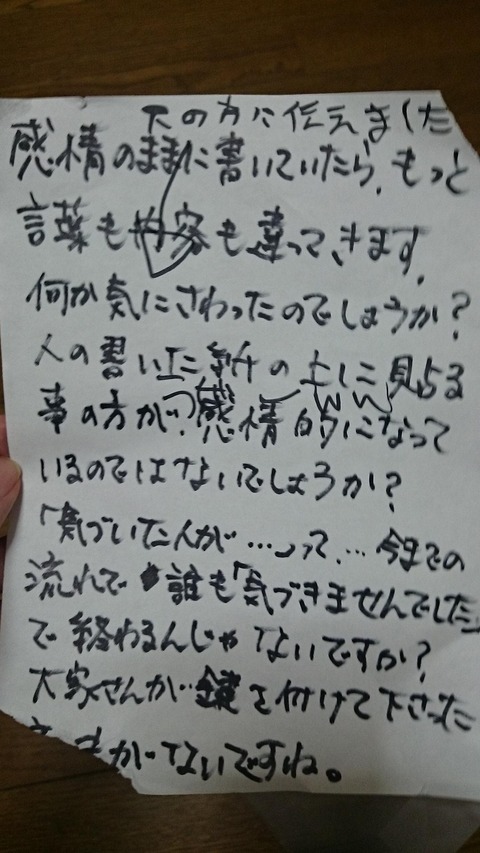 下の方に伝えました
感情のままに書いていたら、もっと
言葉も内容も違ってきます。
何か気にさわったのでしょうか?
人の書いた紙の上に見貼る
事の方が?感情的になって
いるのではないでしょうか?
「気づいた人が…」って…今までの
流れで誰も「気づきませんでした」
で終わるんじゃないですか?
大家さんが鍵を付けて下さった
がないですね。